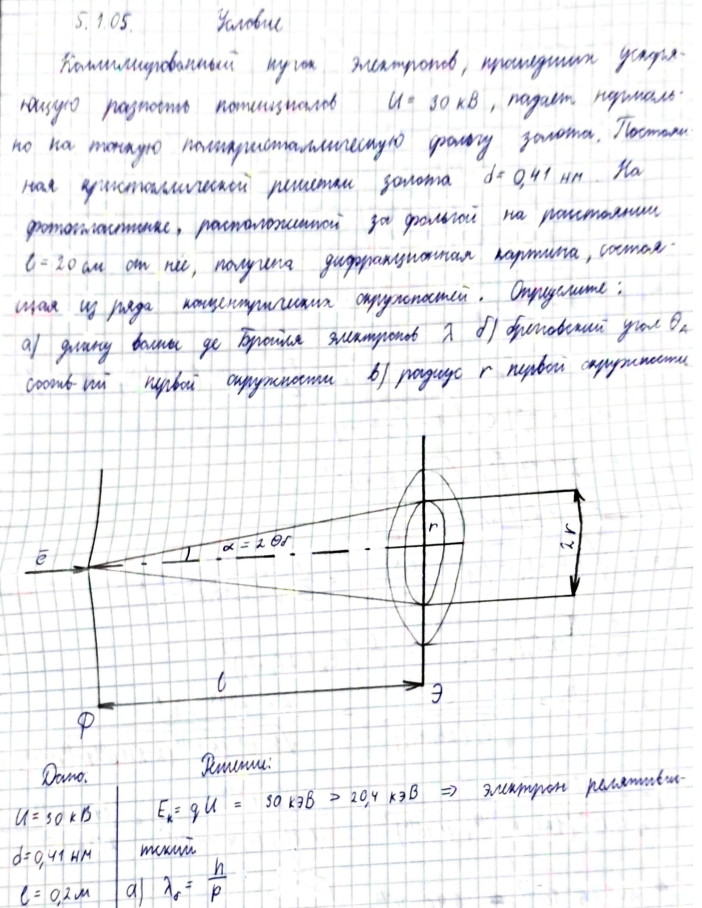 5.1.05. Условие
Коллимированный пучок электронов, прошедших ускоря-
ющую разность потенциалов U = 30 кВ, падает нормаль-
но на тонкую поликристаллическую фольгу золота. Постоян-
ная кристаллической решетки золота d = 0,41 нм. На
фотопластинке, расположенной за фольгой на расстоянии
l = 20 см от нее, получена дифракционная картина, состоя-
щая из ряда концентрических окружностей. Определите:
а) длину волны де Бройля электронов λ б) бреговский угол θ
соотв-ий первой окружности в) радиус r первой окружности
r
e̅
α = 2θб
2r
l
Э
Ф
Дано: Решение:
U = 30 кВ Eк = qU = 30 кэВ > 20,4 кэВ ⇒ электрон релятивис-
d = 0,41 нм тский
l = 0,2 м а) λб = h/p